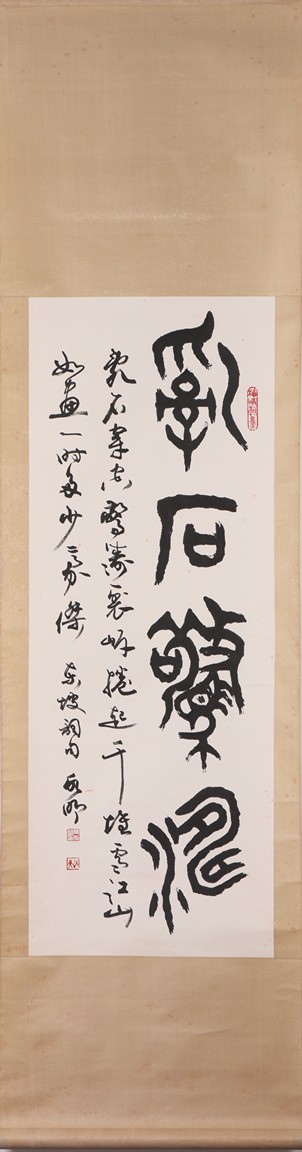 乱石驚濤
乱石穿空驚濤裂岸捲起千堆雪江山
如畫一时多少豪傑 东坡詞句